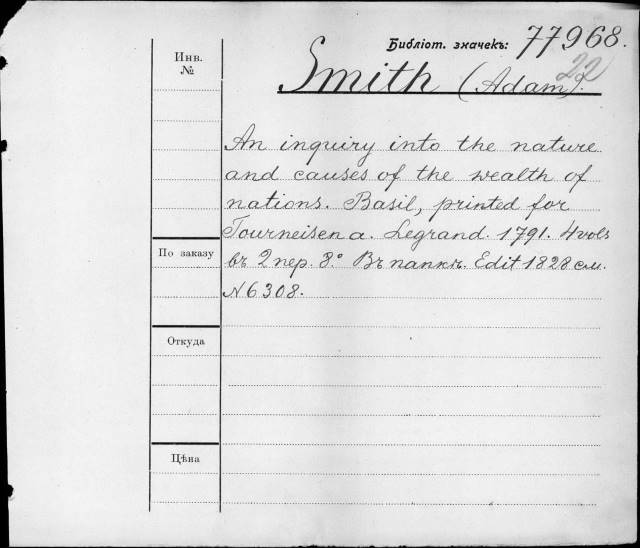 Библіот. значекъ: 77968.
22
Инв.
№
Smith (Adam).
An inquiry into the nature
and causes of the wealth of
nations. Basil, printed for
Tourneisen a. Legrand. 1791. 4 vols
По заказу
въ 2 пер. 8.° Въ папкѣ. Edit 1828 см.
N 6308.
Откуда
Цѣна